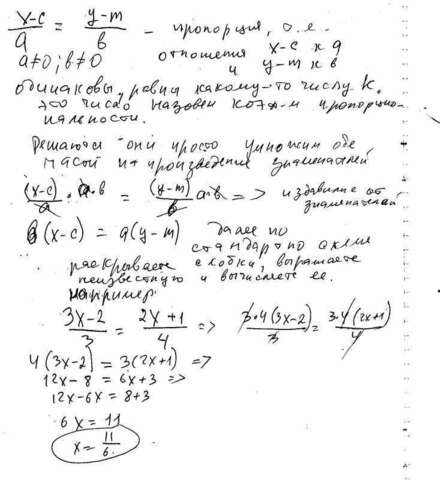 x-c/a = y-m/b - пропорция, т.е.
a≠0; b≠0 отношения x-c к a
и y-m к b
одинаковы, равны какому-то числу k.
это число назовем коэф-м пропорцио-
нальности.
Решаются они просто умножим обе
части на произведение знаменателей
(x-c)/a · a·b = (y-m)/b a·b => избавимся от
знаменателей
b(x-c) = a(y-m) далее по
стандартно
раскрываете скобки, выражаете
неизвестную и вычисляете ее.
например
3x-2/3 = 2x+1/4 => 3·4(3x-2)/3 = 3·4(2x+1)/4
4(3x-2) = 3(2x+1) =>
12x-8 = 6x+3 =>
12x-6x = 8+3
6x = 11
x = 11/6